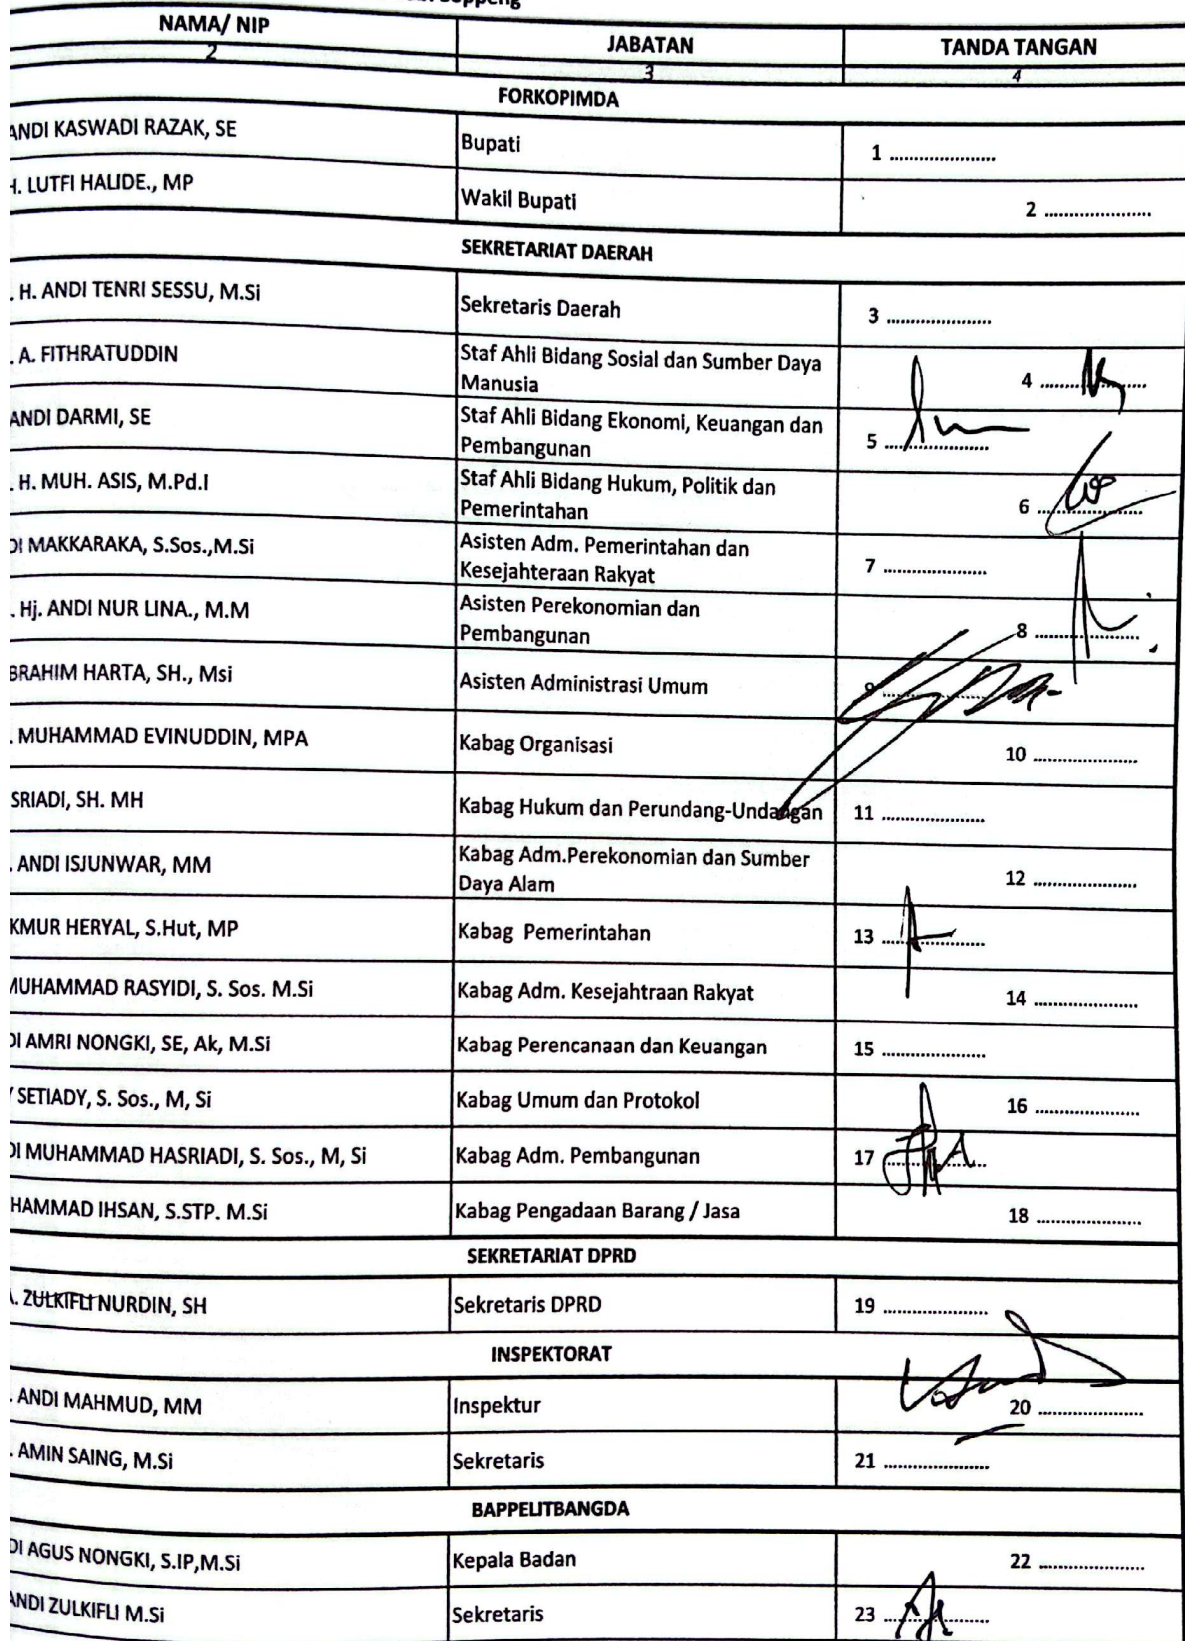 Soppeng
NAMA/ NIP JABATAN TANDA TANGAN
2 3 4
FORKOPIMDA
ANDI KASWADI RAZAK, SE Bupati 1 .....................
H. LUTFI HALIDE., MP Wakil Bupati 2 .....................
SEKRETARIAT DAERAH
. H. ANDI TENRI SESSU, M.Si Sekretaris Daerah 3 .....................
. A. FITHRATUDDIN Staf Ahli Bidang Sosial dan Sumber Daya
Manusia 4 .....................
ANDI DARMI, SE Staf Ahli Bidang Ekonomi, Keuangan dan
Pembangunan 5 .....................
. H. MUH. ASIS, M.Pd.I Staf Ahli Bidang Hukum, Politik dan
Pemerintahan 6 .....................
DI MAKKARAKA, S.Sos.,M.Si Asisten Adm. Pemerintahan dan
Kesejahteraan Rakyat 7 .....................
. Hj. ANDI NUR LINA., M.M Asisten Perekonomian dan
Pembangunan 8 .....................
BRAHIM HARTA, SH., Msi Asisten Administrasi Umum 9 .....................
. MUHAMMAD EVINUDDIN, MPA Kabag Organisasi 10 .....................
SRIADI, SH. MH Kabag Hukum dan Perundang-Undangan 11 .....................
. ANDI ISJUNWAR, MM Kabag Adm.Perekonomian dan Sumber
Daya Alam 12 .....................
KMUR HERYAL, S.Hut, MP Kabag Pemerintahan 13 .....................
MUHAMMAD RASYIDI, S. Sos. M.Si Kabag Adm. Kesejahtraan Rakyat 14 .....................
DI AMRI NONGKI, SE, Ak, M.Si Kabag Perencanaan dan Keuangan 15 .....................
SETIADY, S. Sos., M, Si Kabag Umum dan Protokol 16 .....................
DI MUHAMMAD HASRIADI, S. Sos., M, Si Kabag Adm. Pembangunan 17 .....................
HAMMAD IHSAN, S.STP. M.Si Kabag Pengadaan Barang / Jasa 18 .....................
SEKRETARIAT DPRD
. ZULKIFLI NURDIN, SH Sekretaris DPRD 19 .....................
INSPEKTORAT
. ANDI MAHMUD, MM Inspektur 20 .....................
. AMIN SAING, M.Si Sekretaris 21 .....................
BAPPELITBANGDA
DI AGUS NONGKI, S.IP,M.Si Kepala Badan 22 .....................
ANDI ZULKIFLI M.Si Sekretaris 23 .....................